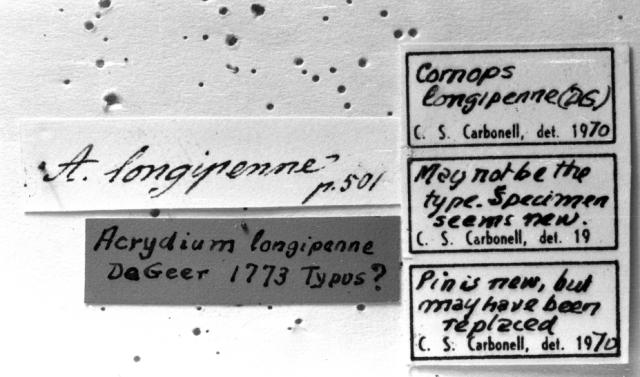 A. longipenne
p. 501
Acrydium longipenne
DeGeer 1773 Typus?
Cornops
longipenne (DG)
C. S. Carbonell, det. 1970
May not be the
type. Specimen
seems new.
C. S. Carbonell, det. 19
Pin is new, but
may have been
replaced
C. S. Carbonell, det. 1970